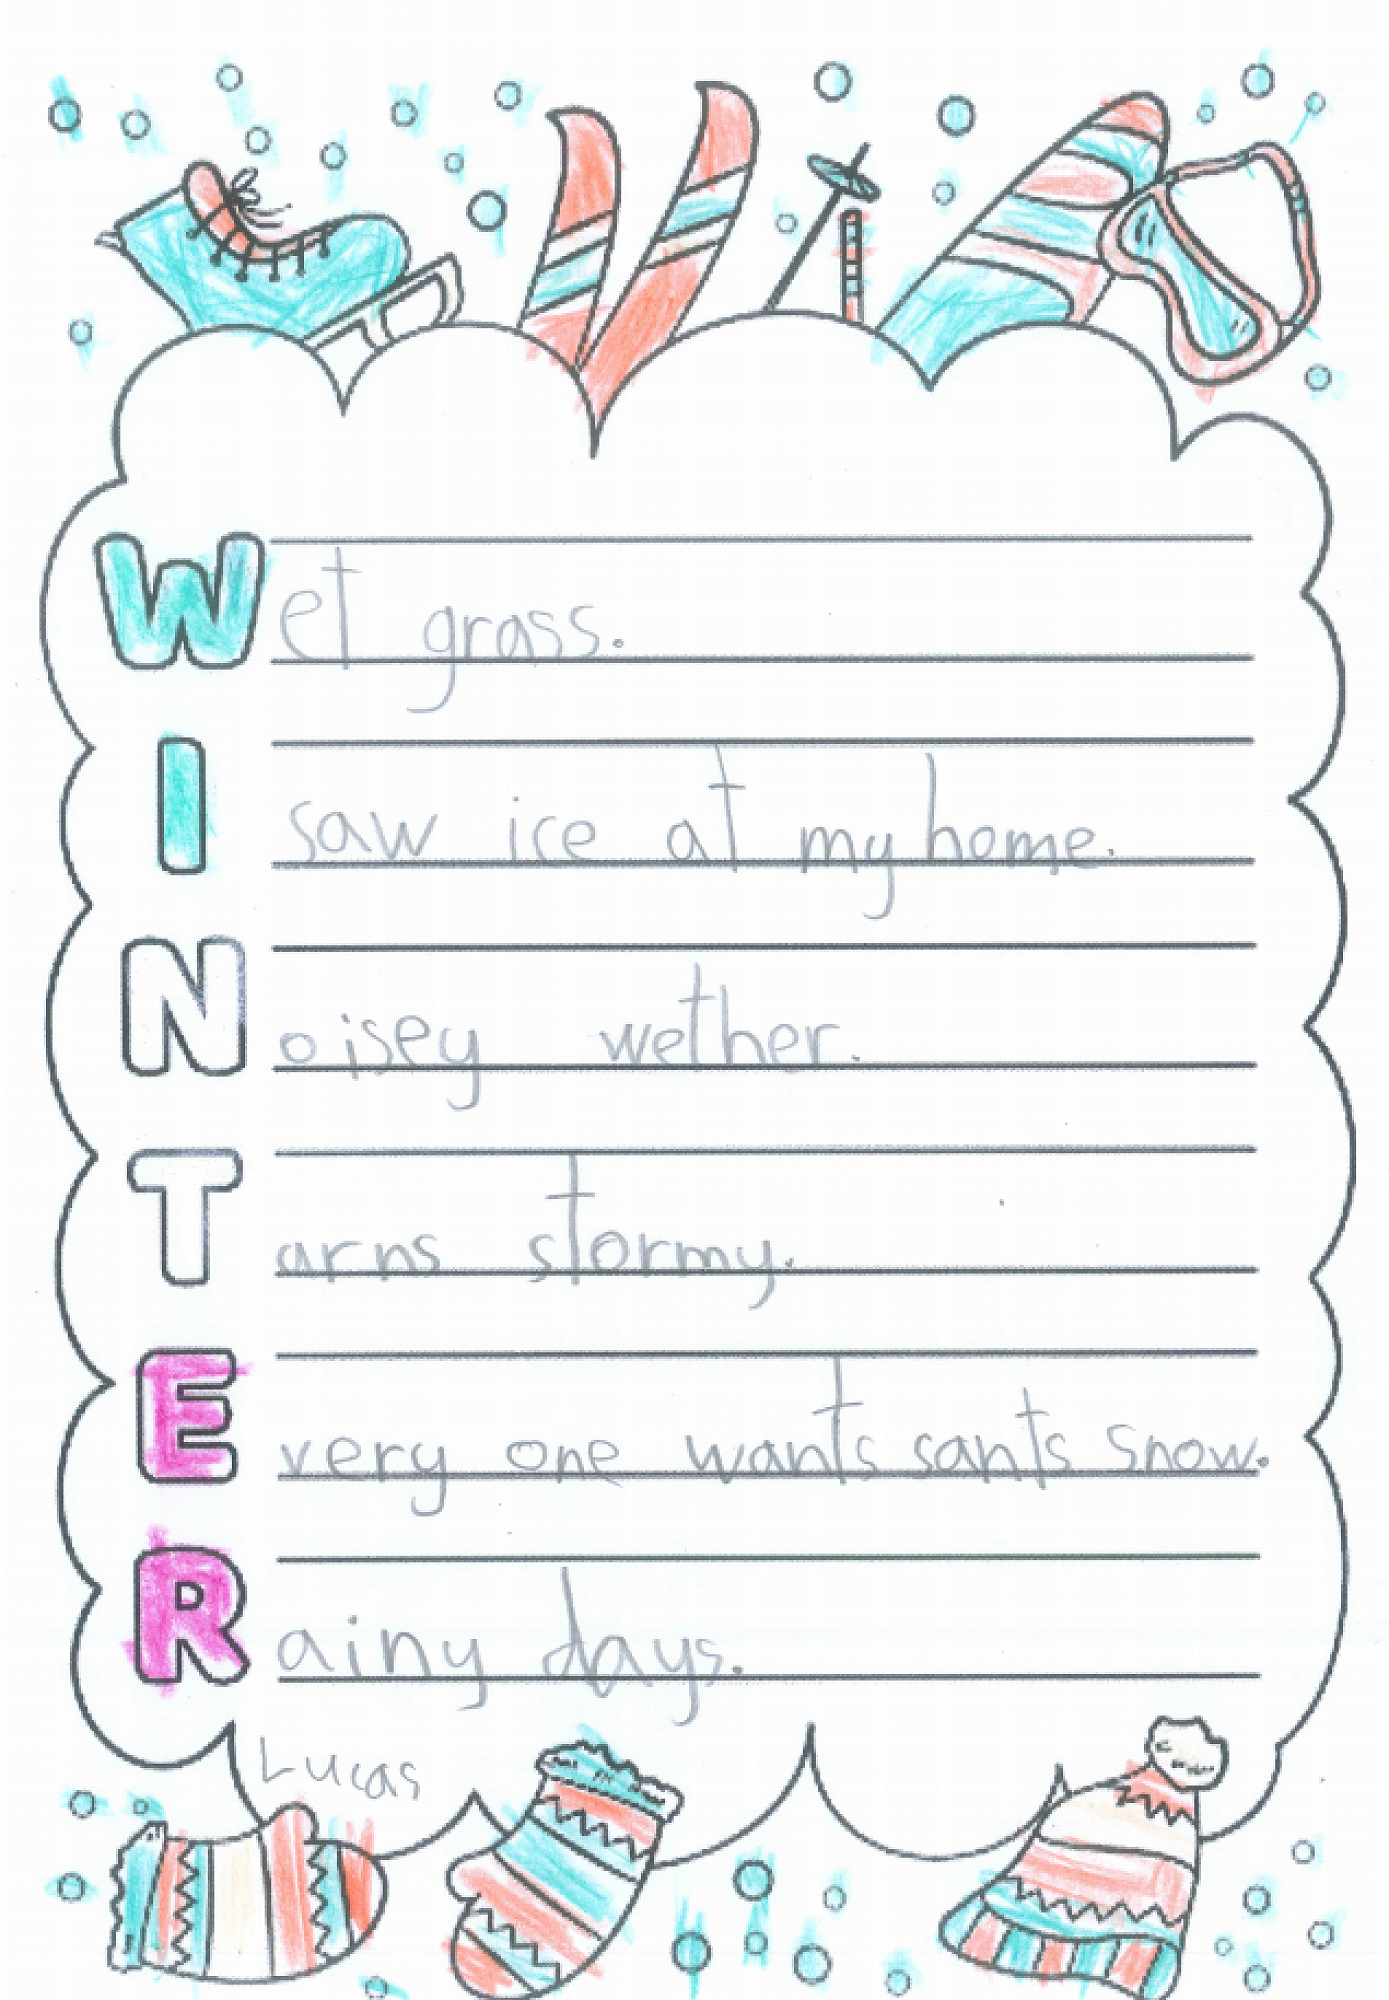 Wet grass.
I saw ice at my home.
Noisey wether.
Tarns stormy.
Every one wants sants snow.
Rainy days.
Lucas